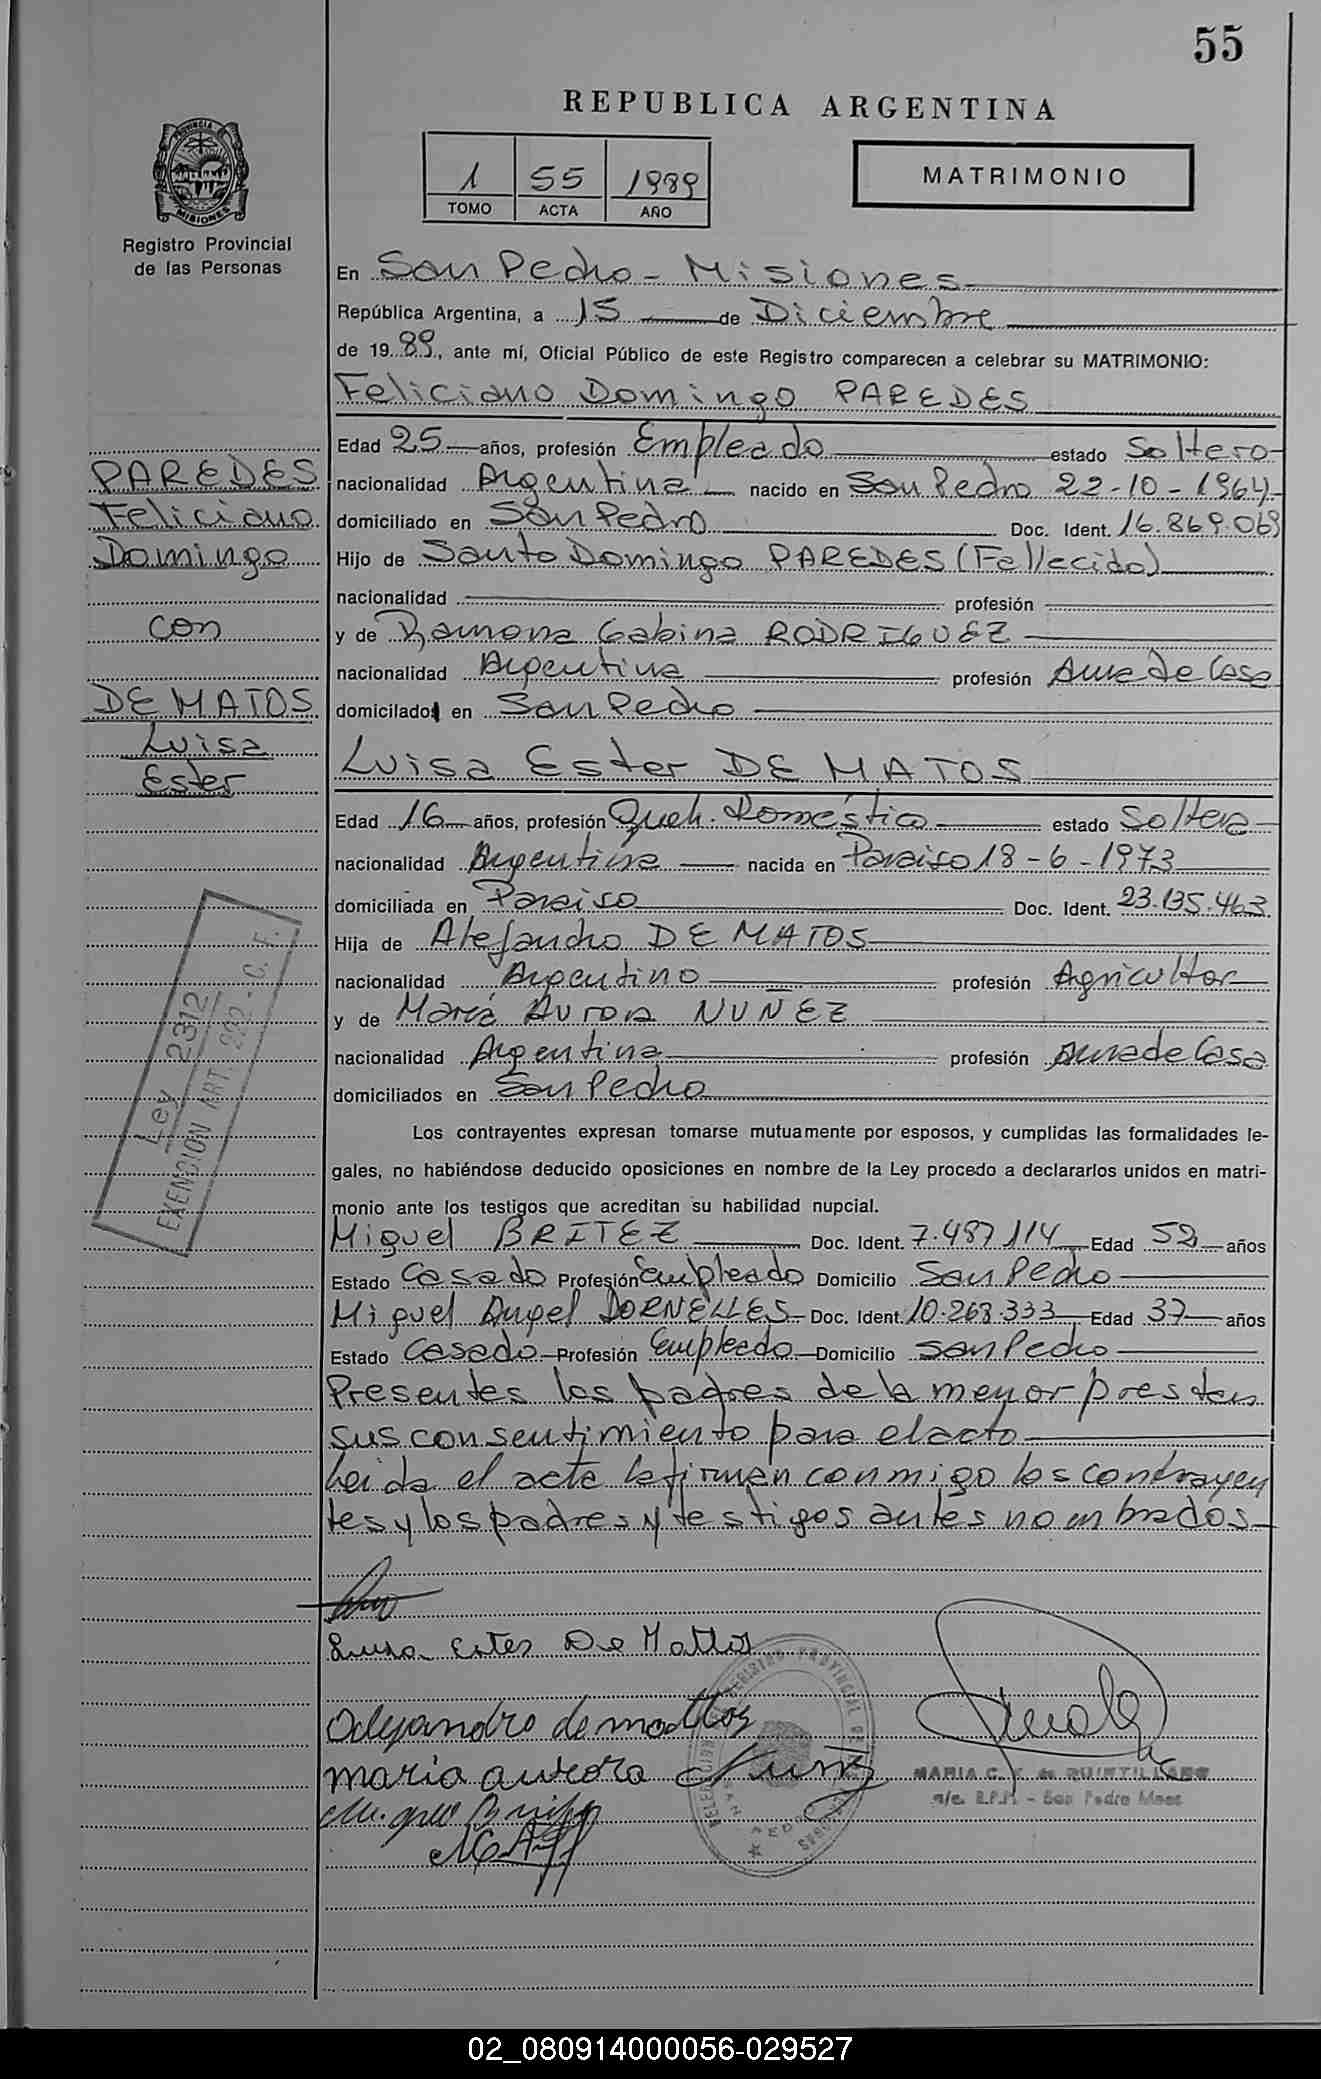 55
REPUBLICA ARGENTINA
1 55 1989
TOMO ACTA AÑO
MATRIMONIO
PROVINCIA DE
MISIONES
Registro Provincial
de las Personas
En San Pedro - Misiones
República Argentina, a 15 de Diciembre
de 19 89, ante mí, Oficial Público de este Registro comparecen a celebrar su MATRIMONIO:
Feliciano Domingo PAREDES
Edad 25 años, profesión Empleado estado Soltero
nacionalidad Argentina nacido en San Pedro 22-10-1964
domiciliado en San Pedro Doc. Ident. 16.869.069
Hijo de Santo Domingo PAREDES (Fallecido)
nacionalidad profesión
y de Ramona Gabina RODRIGUEZ
nacionalidad Argentina profesión Ama de Casa
domicilado en San Pedro
Luisa Ester DE MATOS
Edad 16 años, profesión Queh. Doméstico estado Soltera
nacionalidad Argentina nacida en Paraiso 18-6-1973
domiciliada en Paraiso Doc. Ident. 23.135.463
Hija de Alejandro DE MATOS
nacionalidad Argentino profesión Agricultor
y de María Aurora NUÑEZ
nacionalidad Argentina profesión Ama de Casa
domiciliados en San Pedro
Los contrayentes expresan tomarse mutuamente por esposos, y cumplidas las formalidades le-
gales, no habiéndose deducido oposiciones en nombre de la Ley procedo a declararlos unidos en matri-
monio ante los testigos que acreditan su habilidad nupcial.
Miguel BRITEZ Doc. Ident. 7.487.114 Edad 52 años
Estado Casado Profesión Empleado Domicilio San Pedro
Miguel Angel DORNELLES Doc. Ident. 10.268.333 Edad 37 años
Estado Casado Profesión Empleado Domicilio San Pedro
Presentes los padres de la menor prestan
sus consentimiento para el acto
Leida el acta la firman conmigo los contrayen
tes y los padres y testigos antes nombrados
PAREDES
Feliciano
Domingo
con
DE MATOS
Luisa
Ester
Ley 2312
EXENCION ART. 292 - C. F.
Luisa Ester De Mattos
Alejandro de mattos
maria aurora Nuñez
Miguel Britez
DELEGACION REGISTRO PROVINCIAL DE LAS PERSONAS
SAN PEDRO
MARIA C. K. de QUINTILLANO
a/c. R.P.P. - San Pedro Mnes
02_080914000056-029527